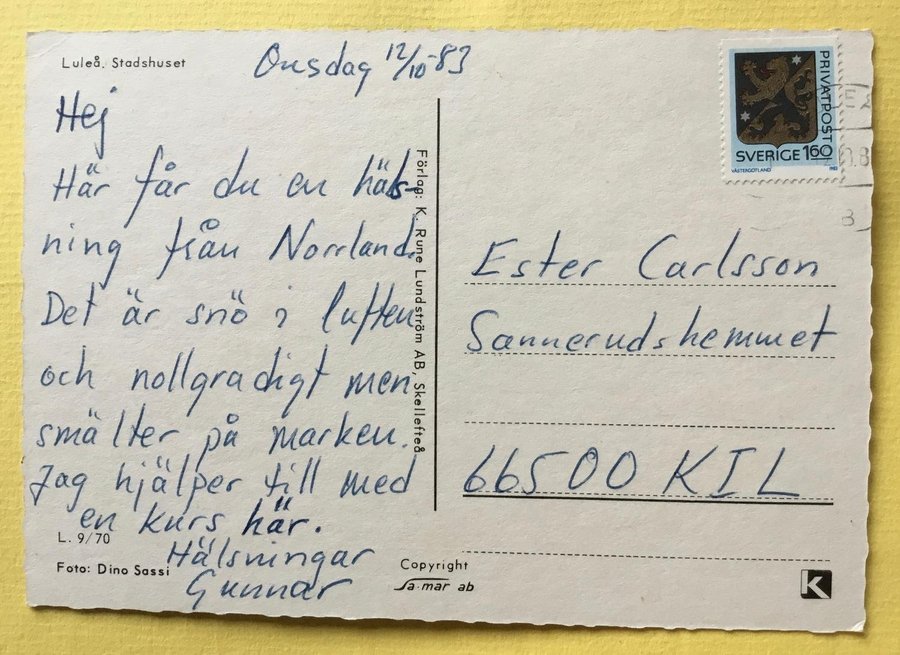 Luleå, Stadshuset
Onsdag 12/10-83
Hej
Här får du en häls-
ning från Norrland.
Det är snö i luften
och nollgradigt men
smälter på marken.
Jag hjälper till med
en kurs här.
Hälsningar
Gunnar
L. 9/70
Foto: Dino Sassi
Förlag: K. Rune Lundström AB, Skellefteå
Copyright
Sa-mar ab
PRIVATPOST
SVERIGE 160
VÄSTERGÖTLAND
1983
Ester Carlsson
Sannerudshemmet
66500 KIL
K